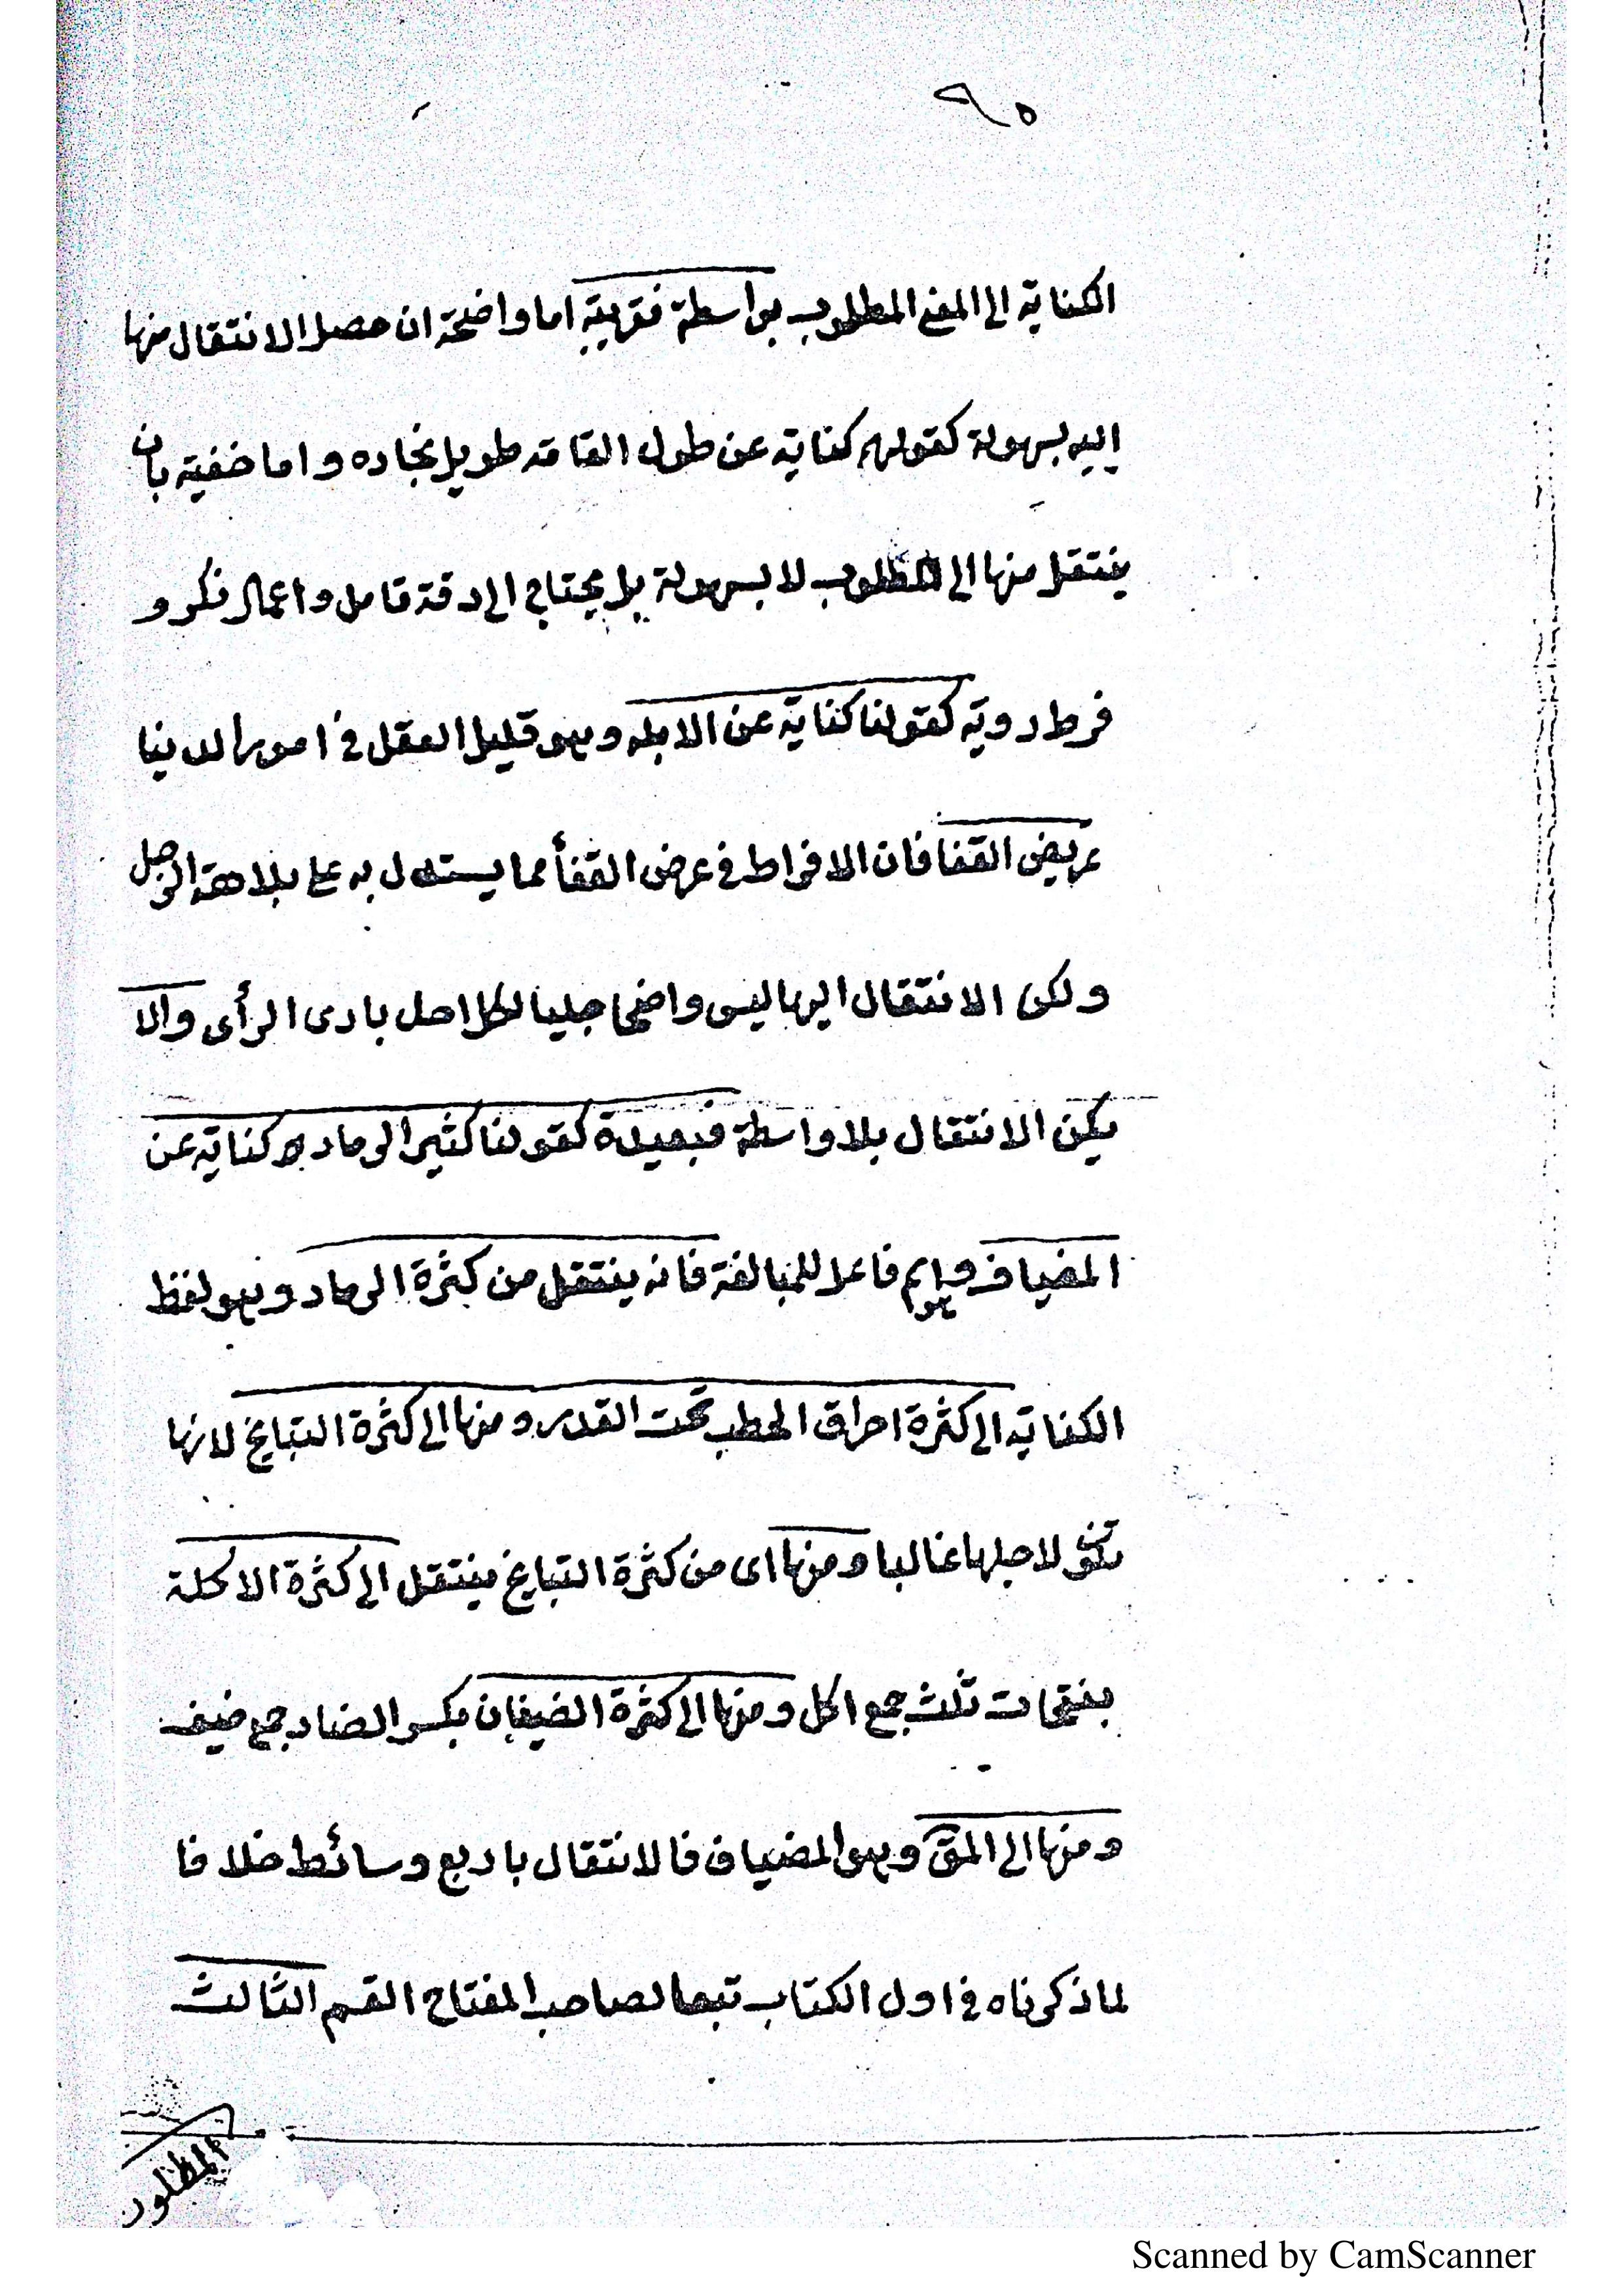 ٩٥
الكناية الى المعنى المطلوب بواسطة فقريبة اما واضحة ان حصل الانتقال منها
اليه بسهولة كقولهم كناية عن طول القامة طويل نجاده واما خفية بان
ينتقل منها الى المطلوب لا بسهولة بل يحتاج الى دقة تامل واعمال فكر و
فرط روية كقولنا كناية عن الابله وهو قليل العقل في امور الدنيا
عريض القفا فان الافراط في عرض القفأ مما يستدل به على بلاهة الرجل
ولكن الانتقال اليها ليس واضحا جليا لكل احد بادى الرأى والا
يكن الانتقال بلا واسطة فبعيدة كقولنا كثير الرماد هو كناية عن
المضياف فاعلا للمبالغة فانه ينتقل من كثرة الرماد وهو لفظ
الكناية الى كثرة احراق الحطب تحت القدر ومنها الى كثرة الطبايخ لانها
تكثر لاجلها غالبا ومنها اى من كثرة الطبايخ ينتقل الى كثرة الاكلة
بفتحات ثلث جمع اكل ومنها الى كثرة الضيفان بكسر الضاد جمع ضيف
ومنها الى المق وهو المضياف فالانتقال باربع وسائط خلافا
لما ذكرناه في اول الكتاب تبعا لصاحب المفتاح القسم الثالث
المطلوب
Scanned by CamScanner